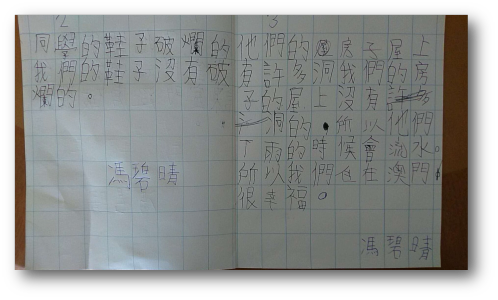 2
同學的鞋子破爛的
我們的鞋子沒有破
爛的。
馮碧晴
3
他們的房子屋上
有許多洞我們的房
子的屋上沒有許多
洞的。所以他們
下雨的時候會流水。
所以我們在澳門
很幸福。
馮碧晴